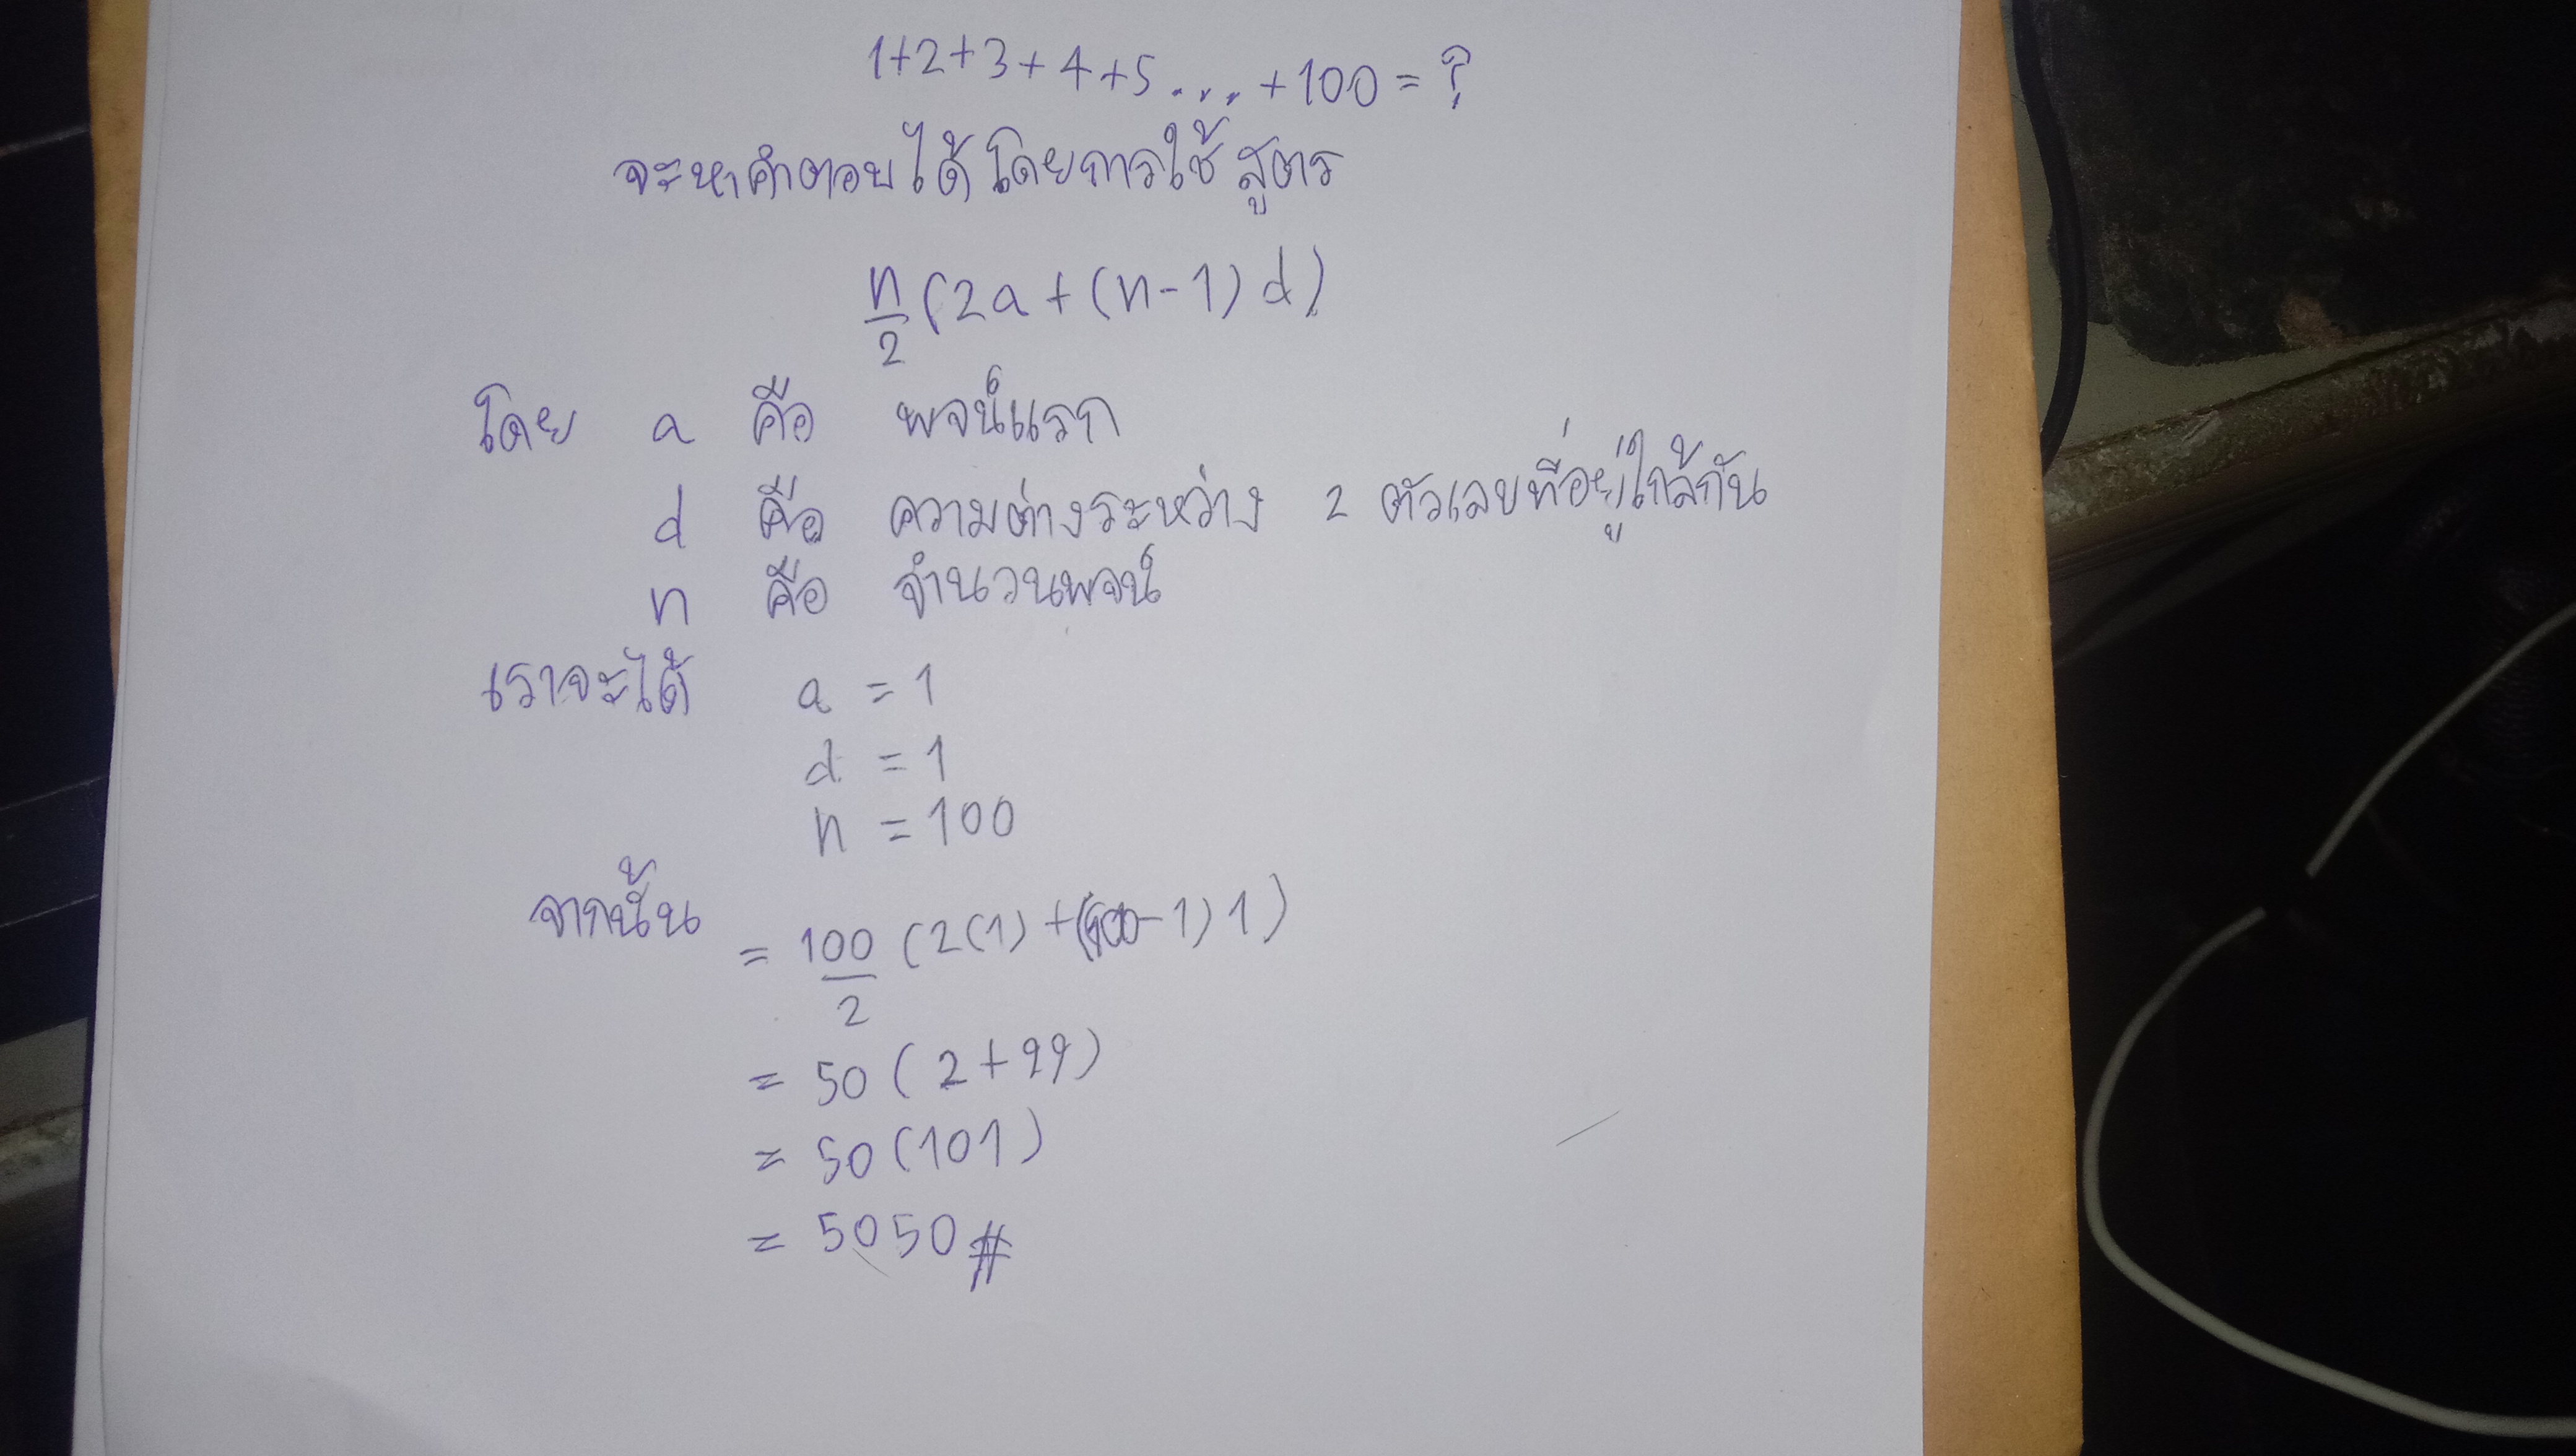 1+2+3+4+5... +100 = ?
จะหาคำตอบได้โดยการใช้สูตร
n/2 (2a + (n-1) d)
โดย a คือ พจน์แรก
d คือ ความต่างระหว่าง 2 ตัวเลขที่อยู่ใกล้กัน
n คือ จำนวนพจน์
เราจะได้ a = 1
d = 1
n = 100
จากนั้น = 100/2 (2(1) + (100-1) 1)
= 50 (2+99)
= 50 (101)
= 5050 #